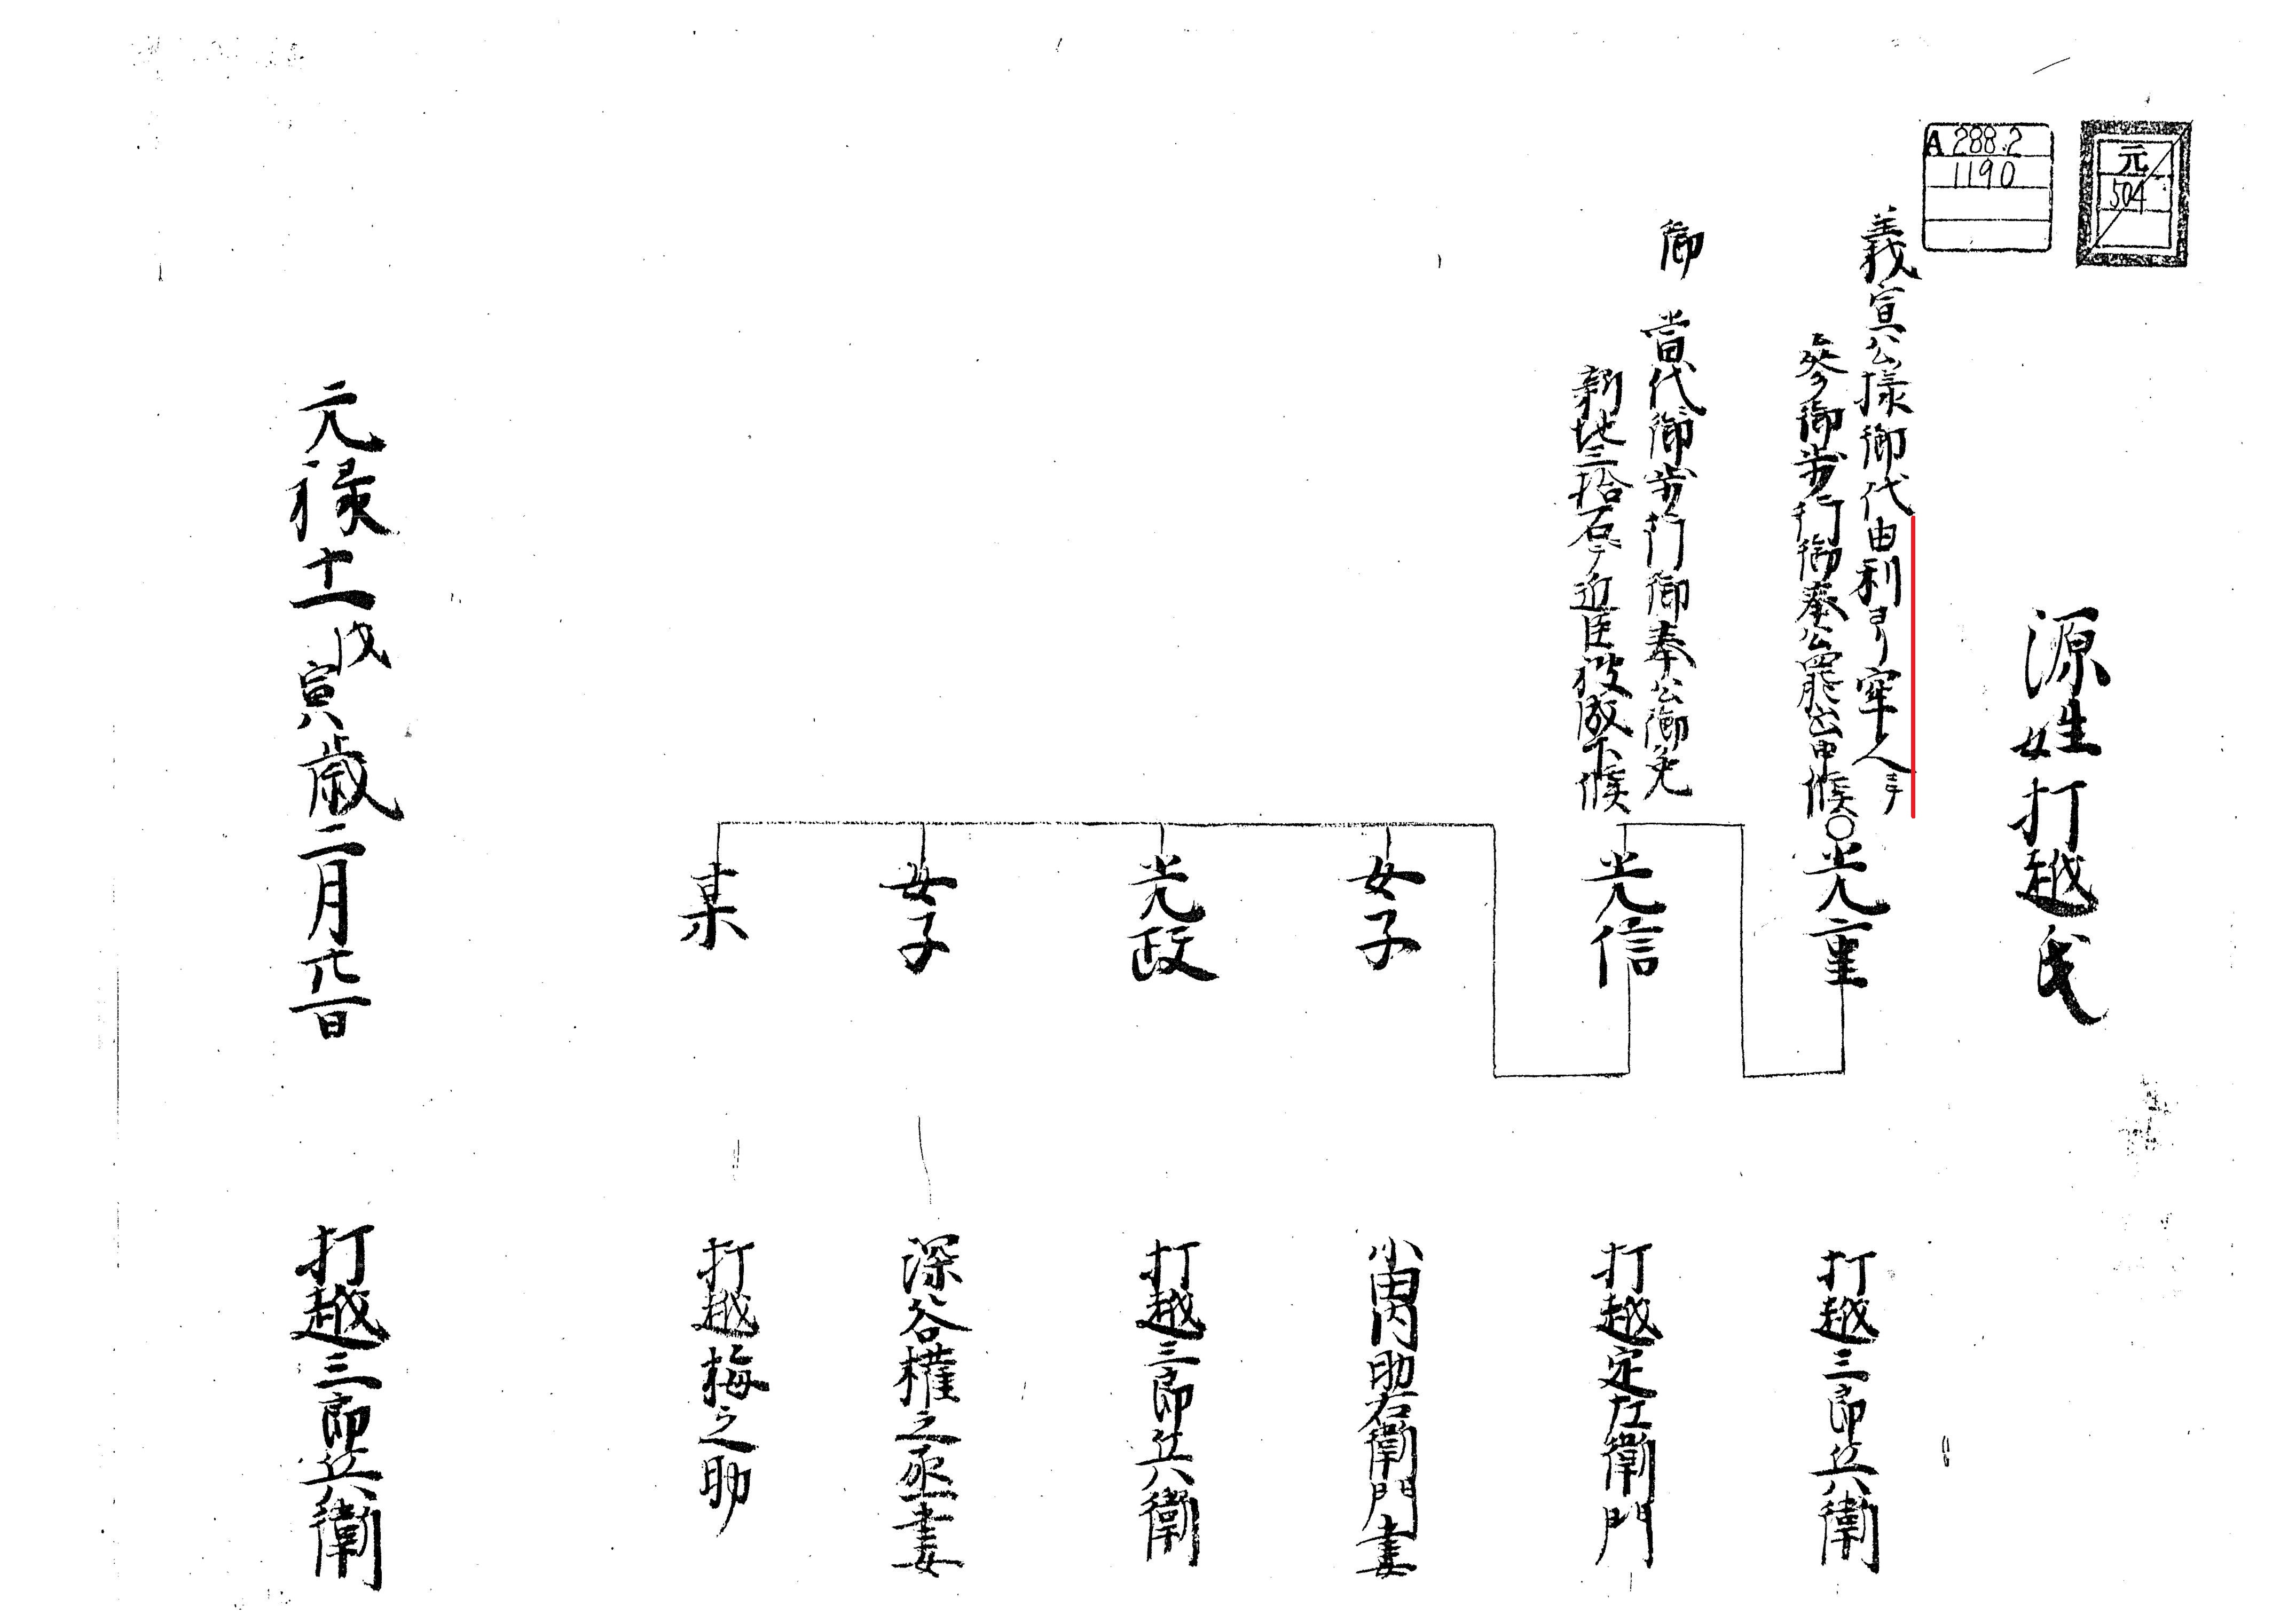 元
504
A 288.2
1190
源姓打越氏
義宣公様御代由利ゟ牢人ニ而
参御歩行御奉公罷出申候
○光重
打越三郎兵衛
御當代御歩行御奉公御免
新地三拾石ニ而近臣被成下候
光信
打越定左衛門
女子
小田内助右衛門妻
光政
打越三郎兵衛
女子
深谷權之丞妻
某
打越梅之助
元禄十一戊寅歳二月廿一日
打越三郎兵衛